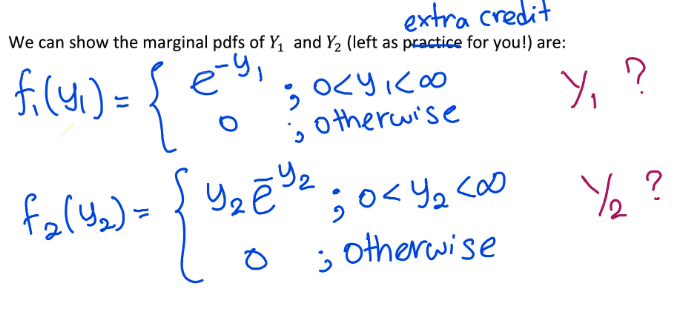 extra credit
We can show the marginal pdfs of Y₁ and Y₂ (left as practice for you!) are:
f₁(y₁) = { e^-y₁ ; 0<y₁<∞ Y₁ ?
0 ; otherwise
f₂(y₂) = { y₂e^-y₂ ; 0<y₂<∞ Y₂ ?
0 ; otherwise